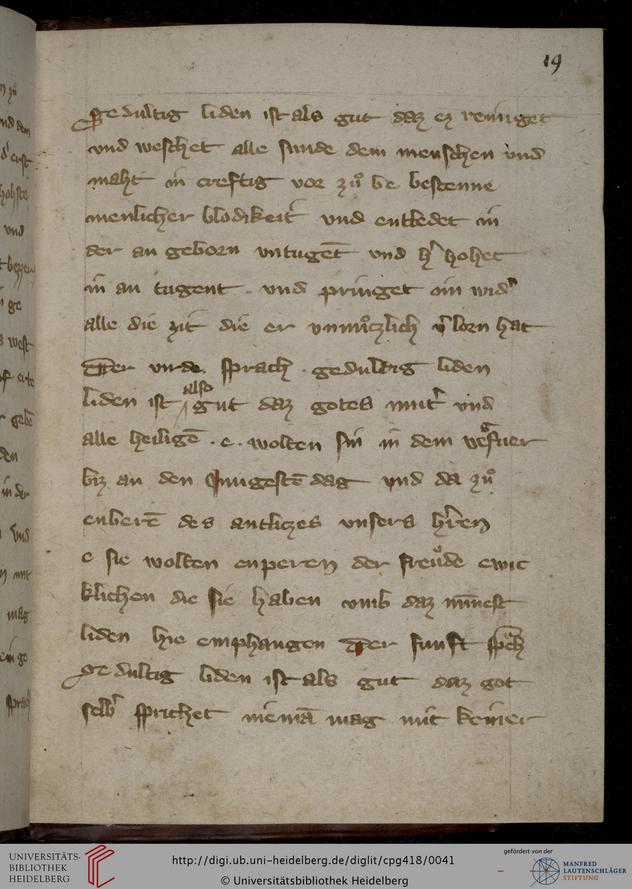 19
gedultig liden ist als gut daz ez reiniget
vnd weschet alle sunde dem menschen vnd
maht in creftig vor zuͦ be bestenne
menlicher blodikeit vnd entledet in
der an geborn vntuget̄ vnd h' hohet
in an tugent . vnd pringet oin wid'
alle die zit die er vnnuͦtzlich v' lorn hat
Der virde sprach . geduldig liden
liden ist also gut daz gotes mut' vnd
alle heilige̅ . e . wolten sin in dem vegfuer
biz an den iungeste̅ dag vnd da zuͦ
enbere̅ des antlitzes vnsers h'ren
e sie wolten enperen der freuͦde ewic
klichen die sie haben vmb daz minnest
liden hie emphangen Der funft sp'ch
gedultig liden ist als gut daz got
selb' sprichet niema̅ mag mit keiner
UNIVERSITÄTS-
BIBLIOTHEK
HEIDELBERG
http://digi.ub.uni-heidelberg.de/diglit/cpg418/0041
© Universitätsbibliothek Heidelberg
gefördert von der
MANFRED
LAUTENSCHLÄGER
STIFTUNG